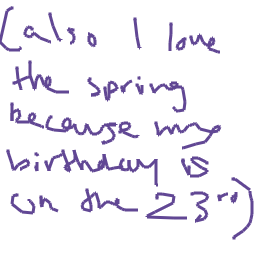 (also I love
the spring
because my
birthday is
on the 23rd)